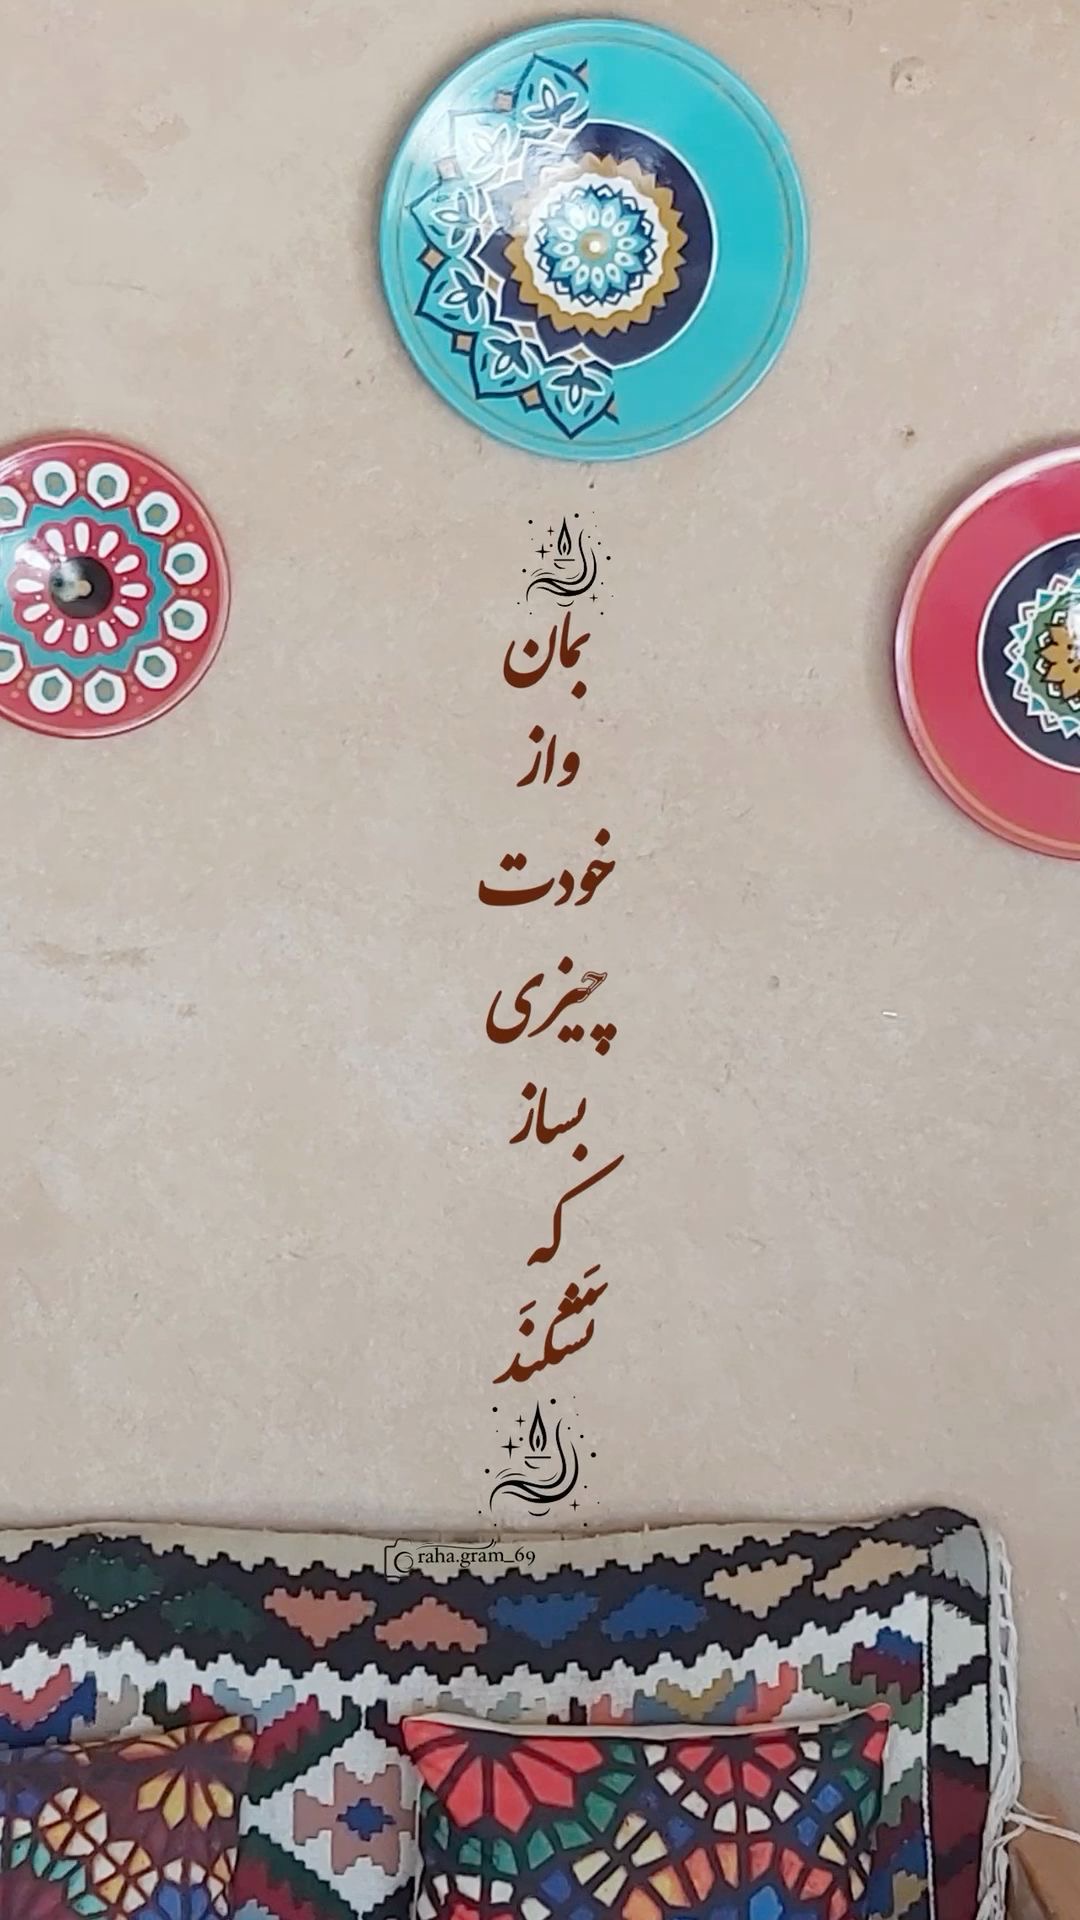 بمان
و از
خودت
چیزی
بساز
که
نَشکنَد
raha.gram_69